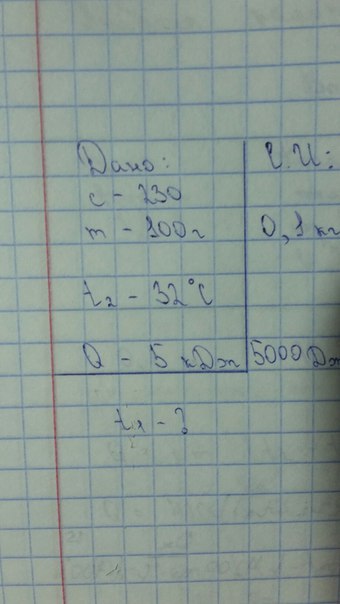 Дано:
С.И:
c - 230
m - 100г
0,1 кг
t₂ - 32°C
Q - 5 кДж
5000 Дж
t₁ - ?